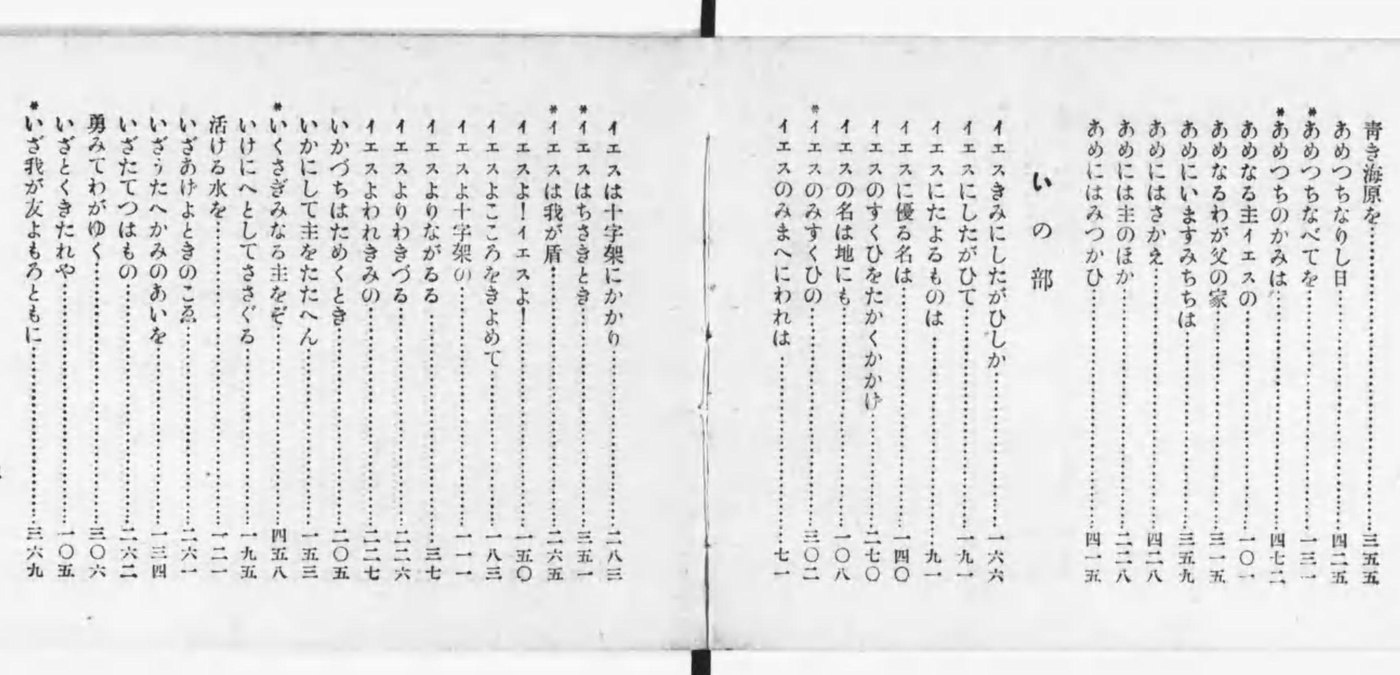 靑き海原を…三五五
あめつちなりし日…四二五
*あめつちなべてを…一三一
*あめつちのかみは…四七二
あめなる主イエスの…一〇一
あめなるわが父の家…三一五
あめにいますみちちは…三五九
あめにはさかえ…四二八
あめには主のほか…二二八
あめにはみつかひ…四一五
いの部
イエスきみにしたがひしか…一六六
イエスにしたがひて…一九一
イエスにたよるものは…九一
イエスに優る名は…一四〇
イエスのすくひをたかくかかげ…二七〇
イエスの名は地にも…一〇八
*イエスのみすくひの…三〇二
イエスのみまへにわれは…七一
イエスは十字架にかかり…二八三
*イエスはちさきとき…三五一
*イエスは我が盾…二六五
イエスよ!イエスよ!…一五〇
イエスよこころをきよめて…一八三
イエスよ十字架の…一一一
イエスよりながるる…三七
イエスよりわきづる…二二六
イエスよわれきみの…二二七
いかづちはためくとき…二〇五
いかにして主をたたへん…一五三
*いくさぎみなる主をぞ…四五八
いけにへとしてささぐる…一九五
活ける水を…一二一
いざあげよときのこゑ…二六一
いざうたへかみのあいを…一三四
いざたてつはもの…二六二
勇みてわがゆく…三〇六
いざとくきたれや…一〇五
*いざ我が友よもろともに…三六九